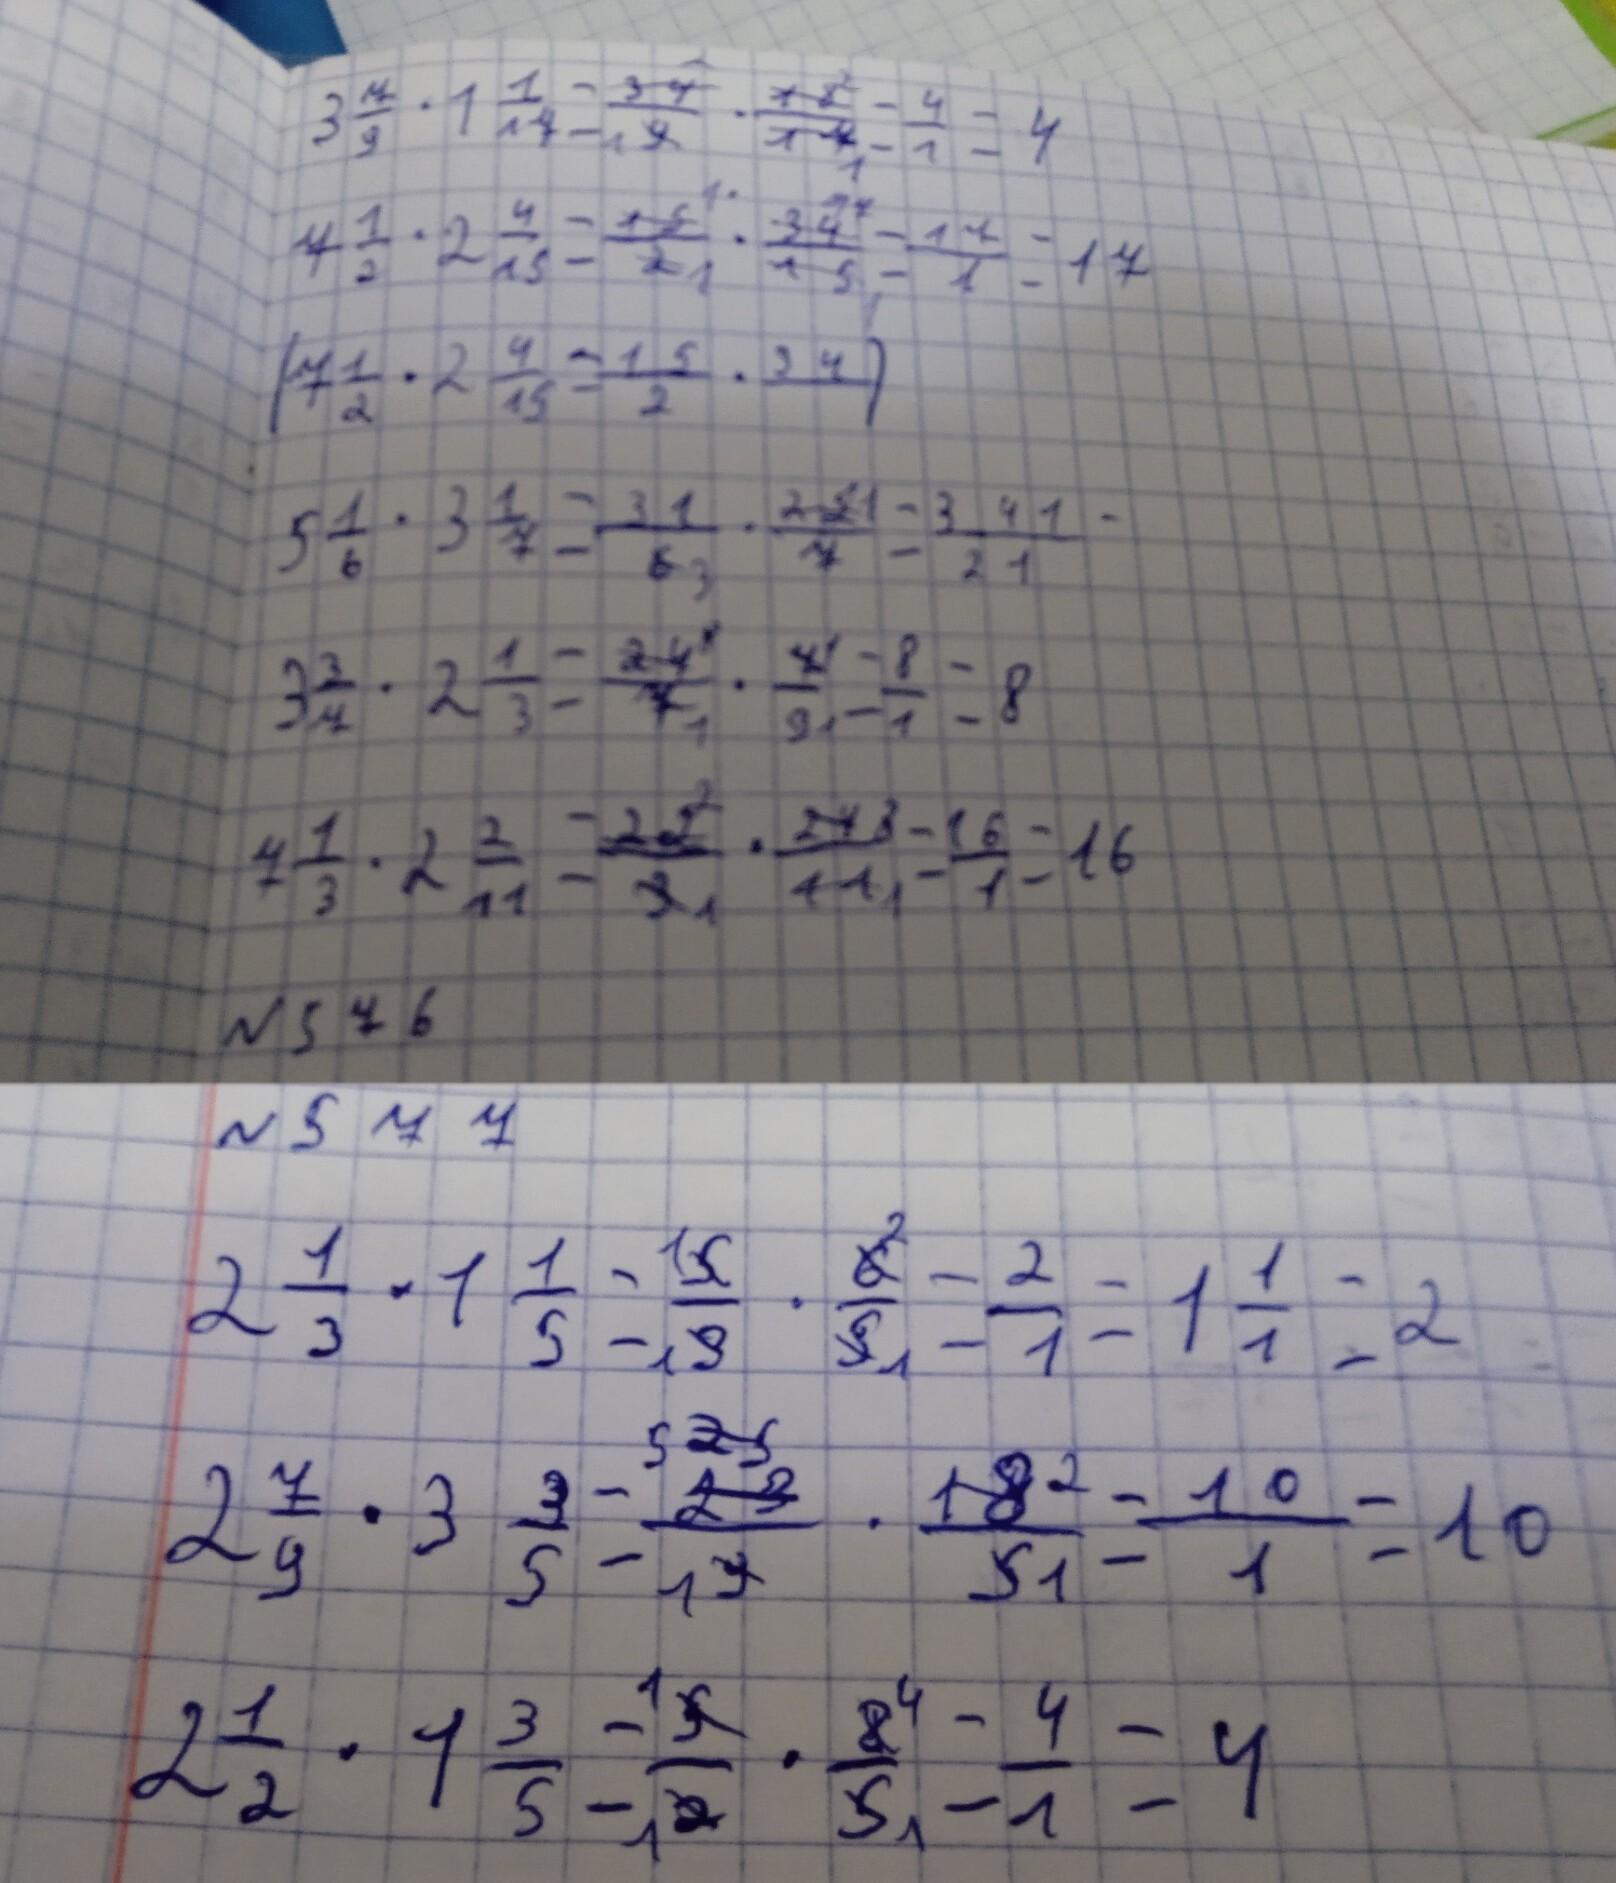 3 7/9 · 1 1/17 = 34/9 · 18/17 = 4/1 = 4
7 1/2 · 2 4/15 = 15/2 · 34/15 = 17/1 = 17
(7 1/2 · 2 4/15 = 15/2 · 34/ )
5 1/6 · 3 1/7 = 31/6 · 22/7 = 341/21 =
3 3/7 · 2 1/3 = 24/7 · 7/3 = 8/1 = 8
7 1/3 · 2 2/11 = 22/3 · 24/11 = 16/1 = 16
№ 5 7 6
№ 5 7 7
2 1/3 · 1 1/5 = 5/3 · 6/5 = 2/1 = 1 1/1 = 2
2 7/9 · 3 3/5 = 25/9 · 18/5 = 10/1 = 10
2 1/2 · 1 3/5 = 5/2 · 8/5 = 4/1 = 4